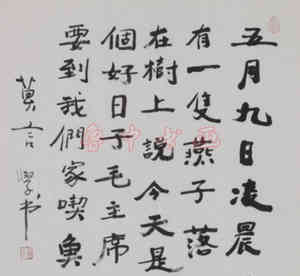 五月九日凌晨
有一隻燕子落
在樹上說今天是
個好日子毛主席
要到我們家喫魚
莫言學书